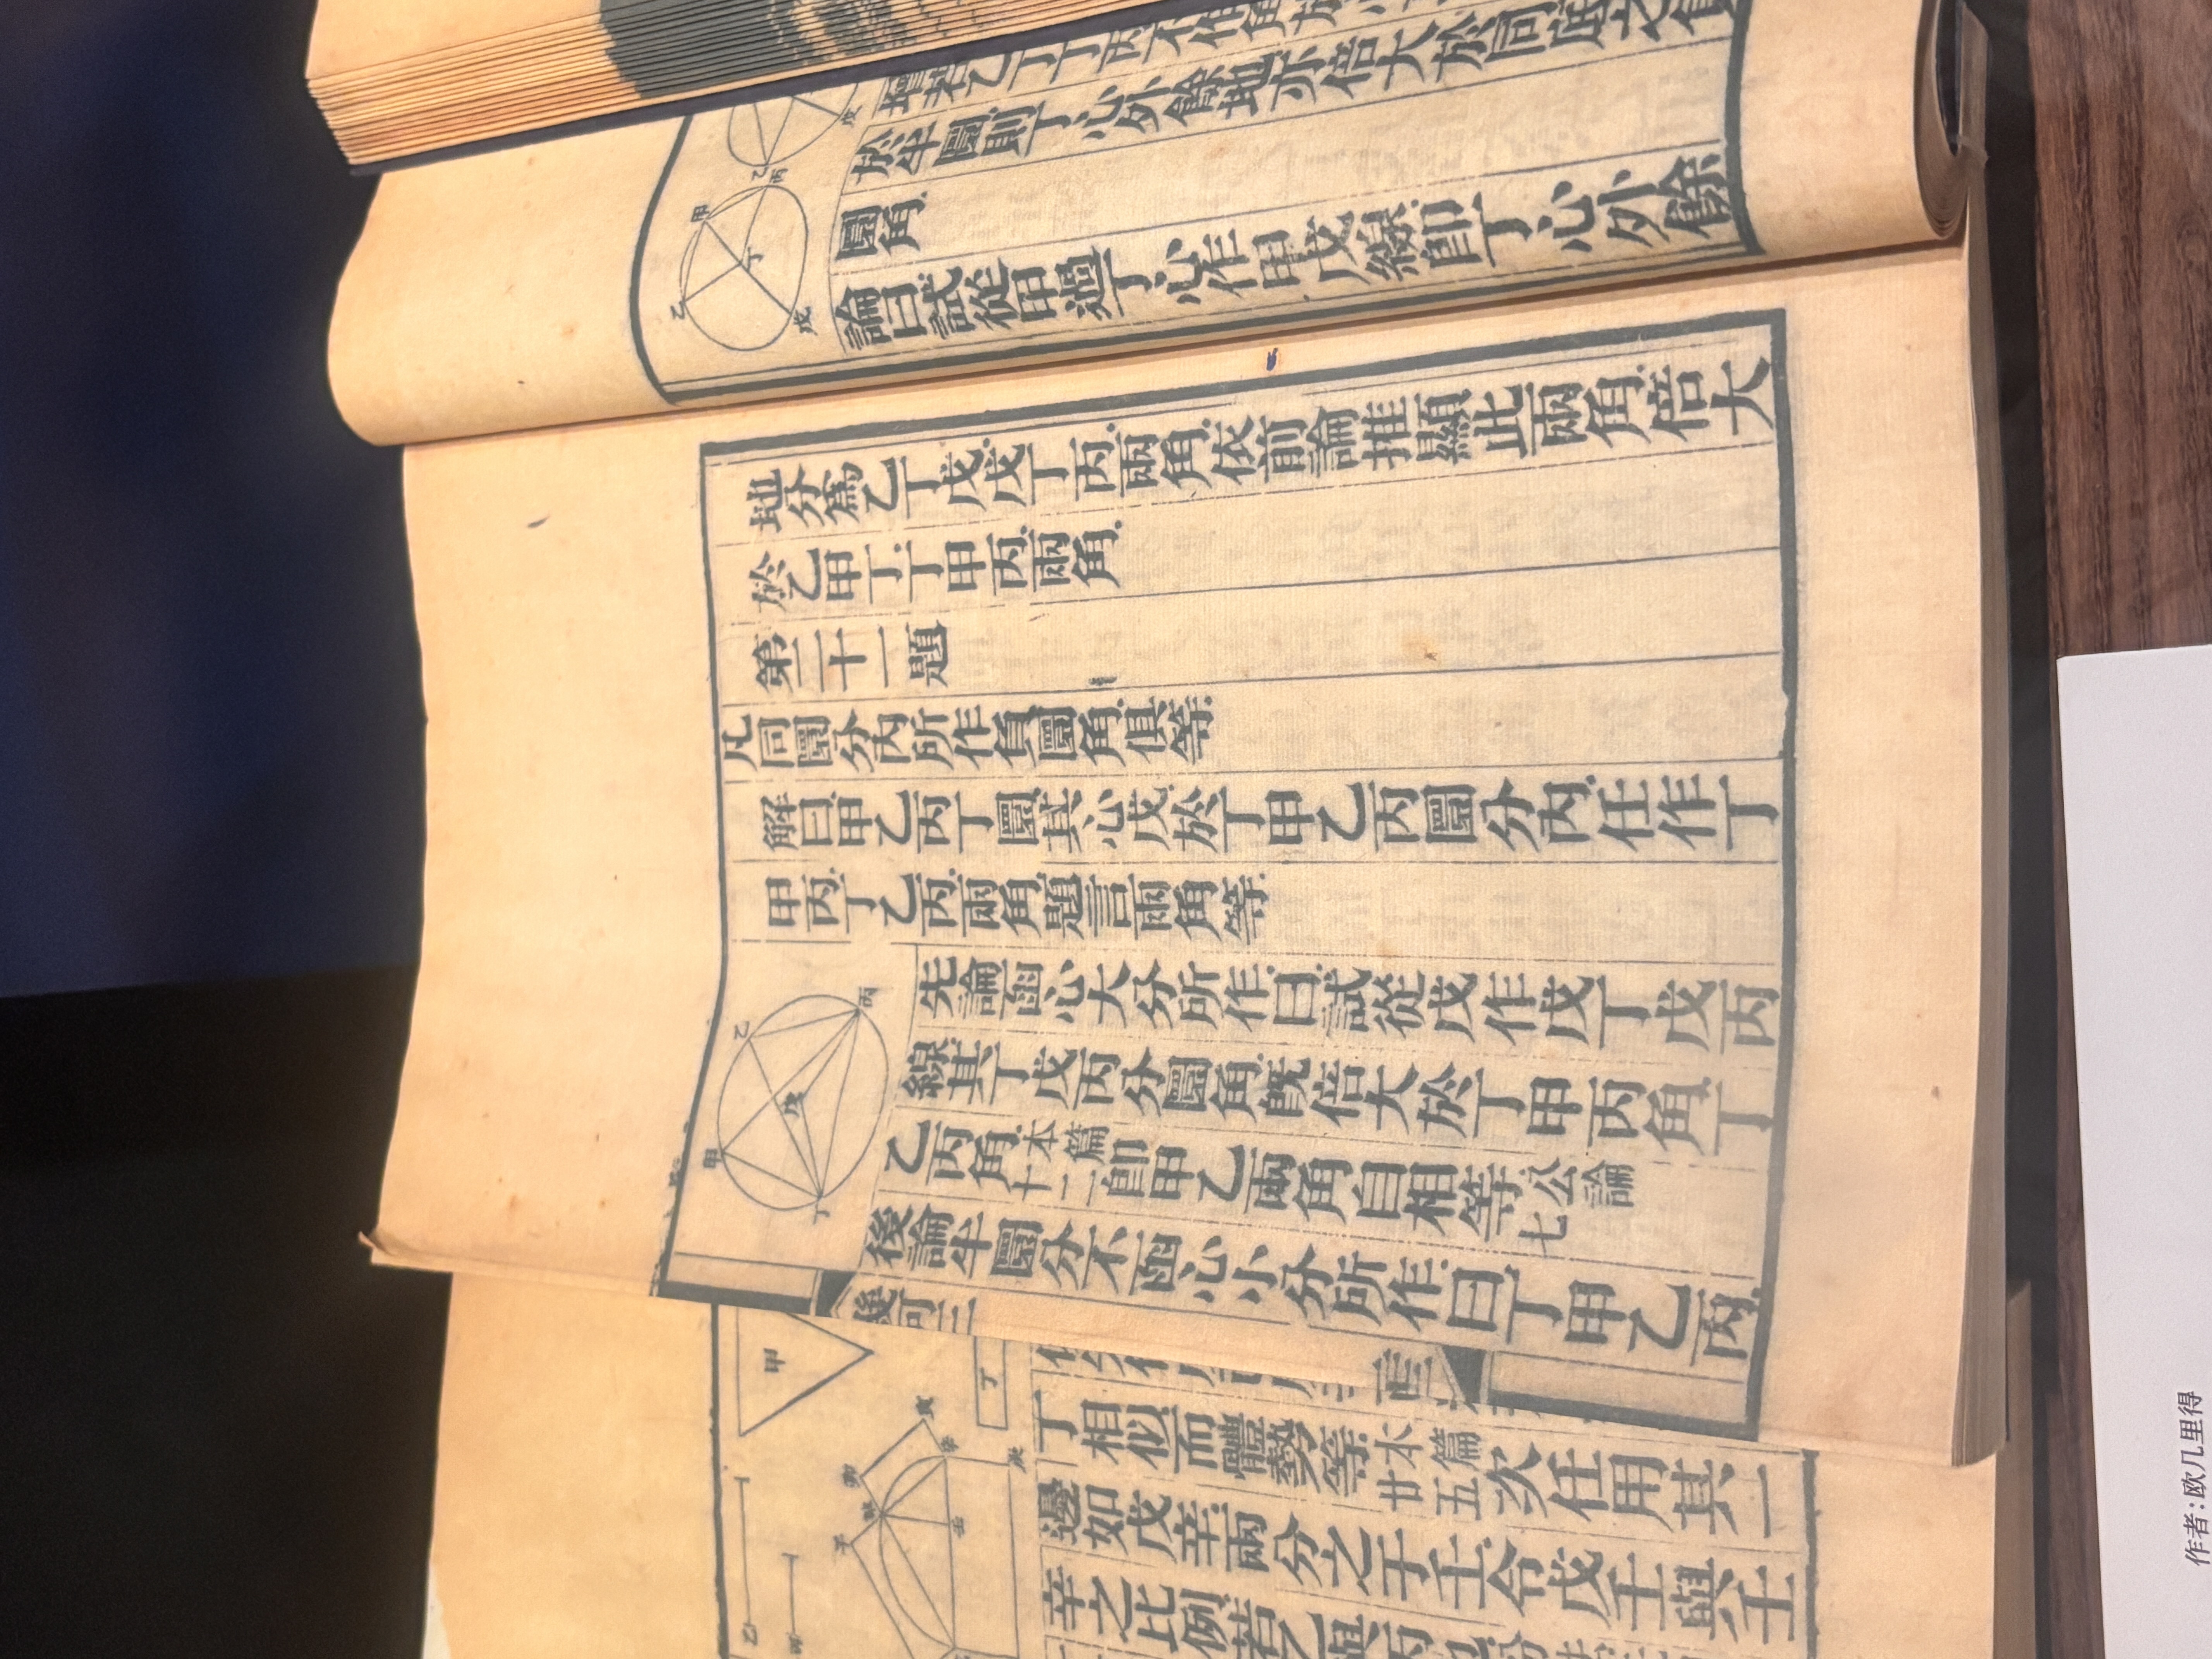 地分為乙丁戊戊丁丙兩角依前論推顯此兩角倍大
於乙甲丁丁甲丙兩角
第二十一題
凡同圜分內所作負圜角俱等
解曰甲乙丙丁圜其心戊於丁甲乙丙圜分內任作丁
甲丙丁乙丙兩角題言兩角等
先論函心大分所作曰試從戊作戊丁戊丙
線其丁戊丙分圜角既倍大於丁甲丙角丁
乙丙角本篇二十即甲乙兩角自相等公論七
後論半圜分不函心小分所作曰丁甲乙丙
於半圜則丁心外餘地亦倍大於同底之負
圜角
論曰試從甲過丁心作甲戊線即丁心外餘
丁相似而體勢等本篇廿五次任用其一
邊如戊辛兩分之于壬令戊壬與壬
辛之比例若乙與丙
甲
乙
丙
丁
戊
甲
乙
丙
丁
戊
甲
丁
作者:欧几里得